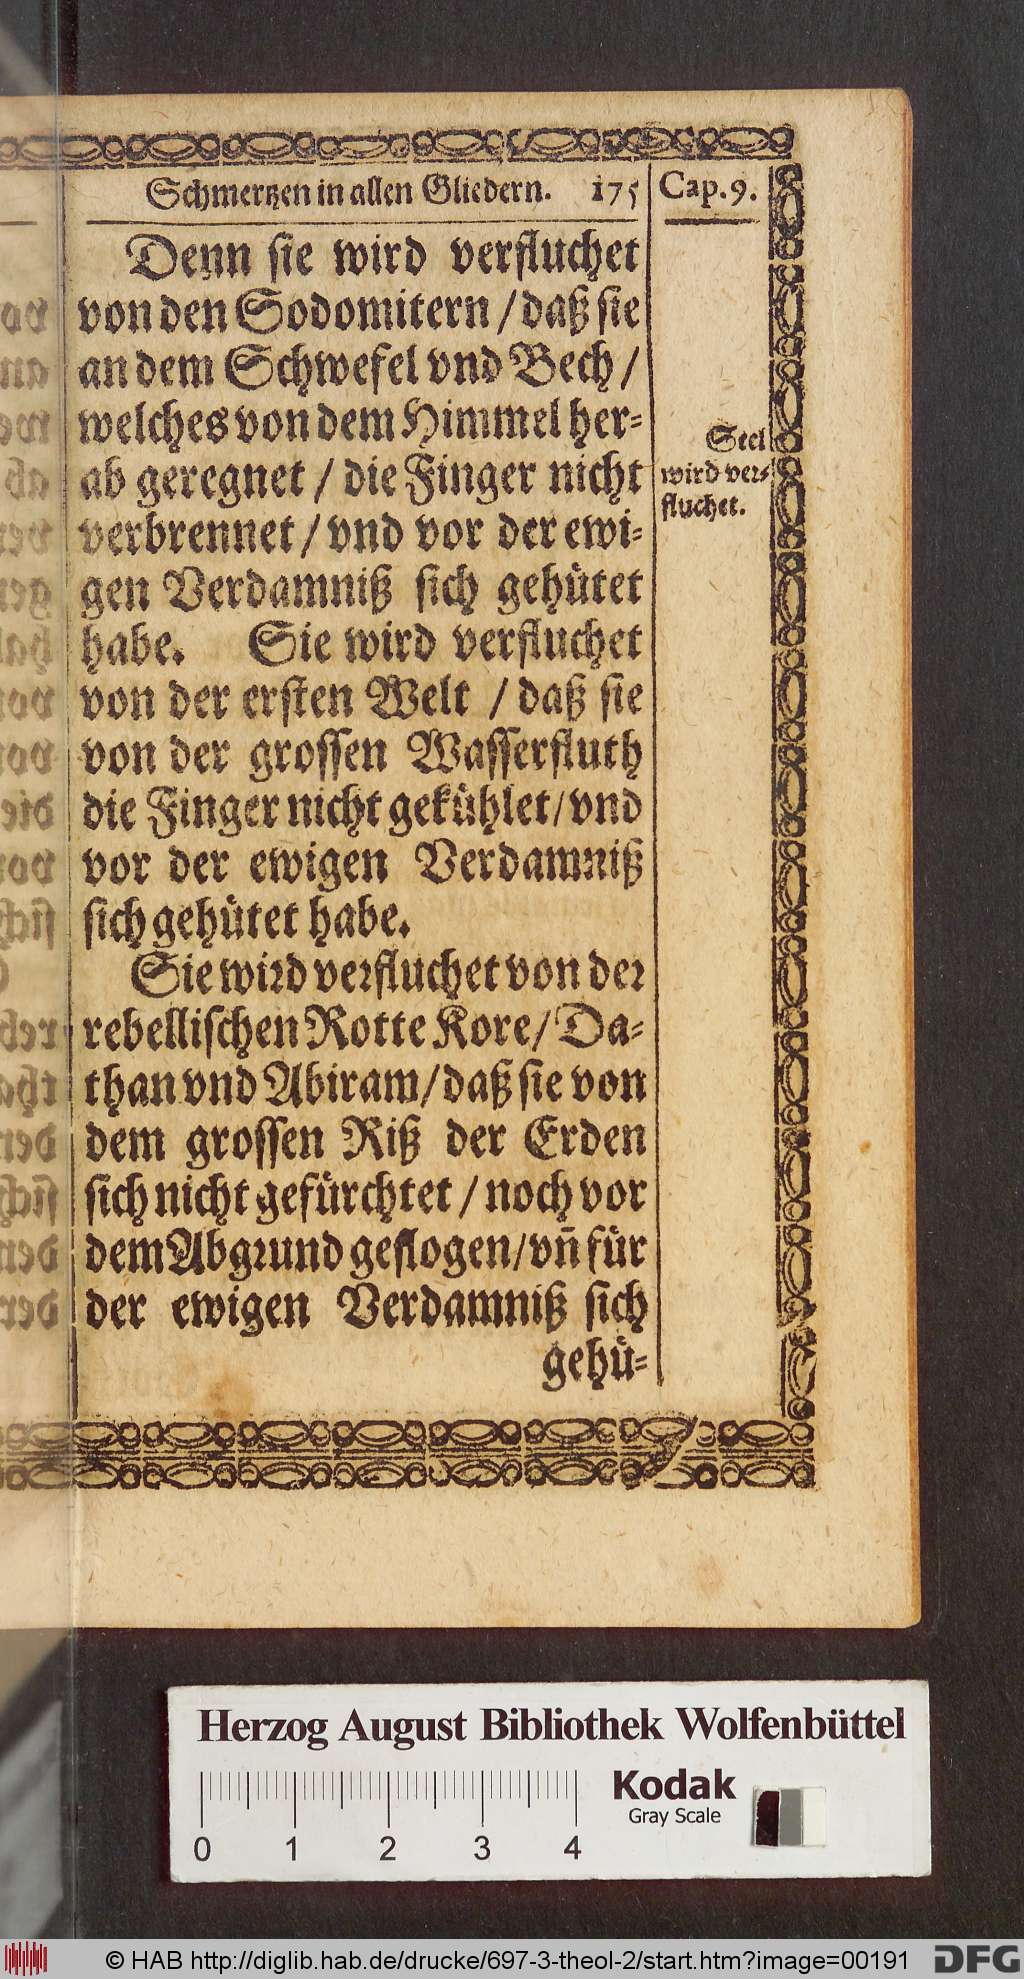 Schmertzen in allen Gliedern. 175
Cap. 9.
Denn sie wird verfluchet
von den Sodomitern / daß sie
an dem Schwefel vnd Bech /
welches von dem Himmel her-
ab geregnet / die Finger nicht
verbrennet / vnd vor der ewi-
gen Verdamniß sich gehütet
habe. Sie wird verfluchet
von der ersten Welt / daß sie
von der grossen Wasserfluth
die Finger nicht gekühlet / vnd
vor der ewigen Verdamniß
sich gehütet habe.
Sie wird verfluchet von der
rebellischen Rotte Kore / Da-
than vnd Abiram / daß sie von
dem grossen Riß der Erden
sich nicht gefürchtet / noch vor
dem Abgrund geflogen / vn̄ für
der ewigen Verdamniß sich
gehü-
Seel
wird ver-
fluchet.
Herzog August Bibliothek Wolfenbüttel
Kodak
Gray Scale
0 1 2 3 4
© HAB http://diglib.hab.de/drucke/697-3-theol-2/start.htm?image=00191
DFG